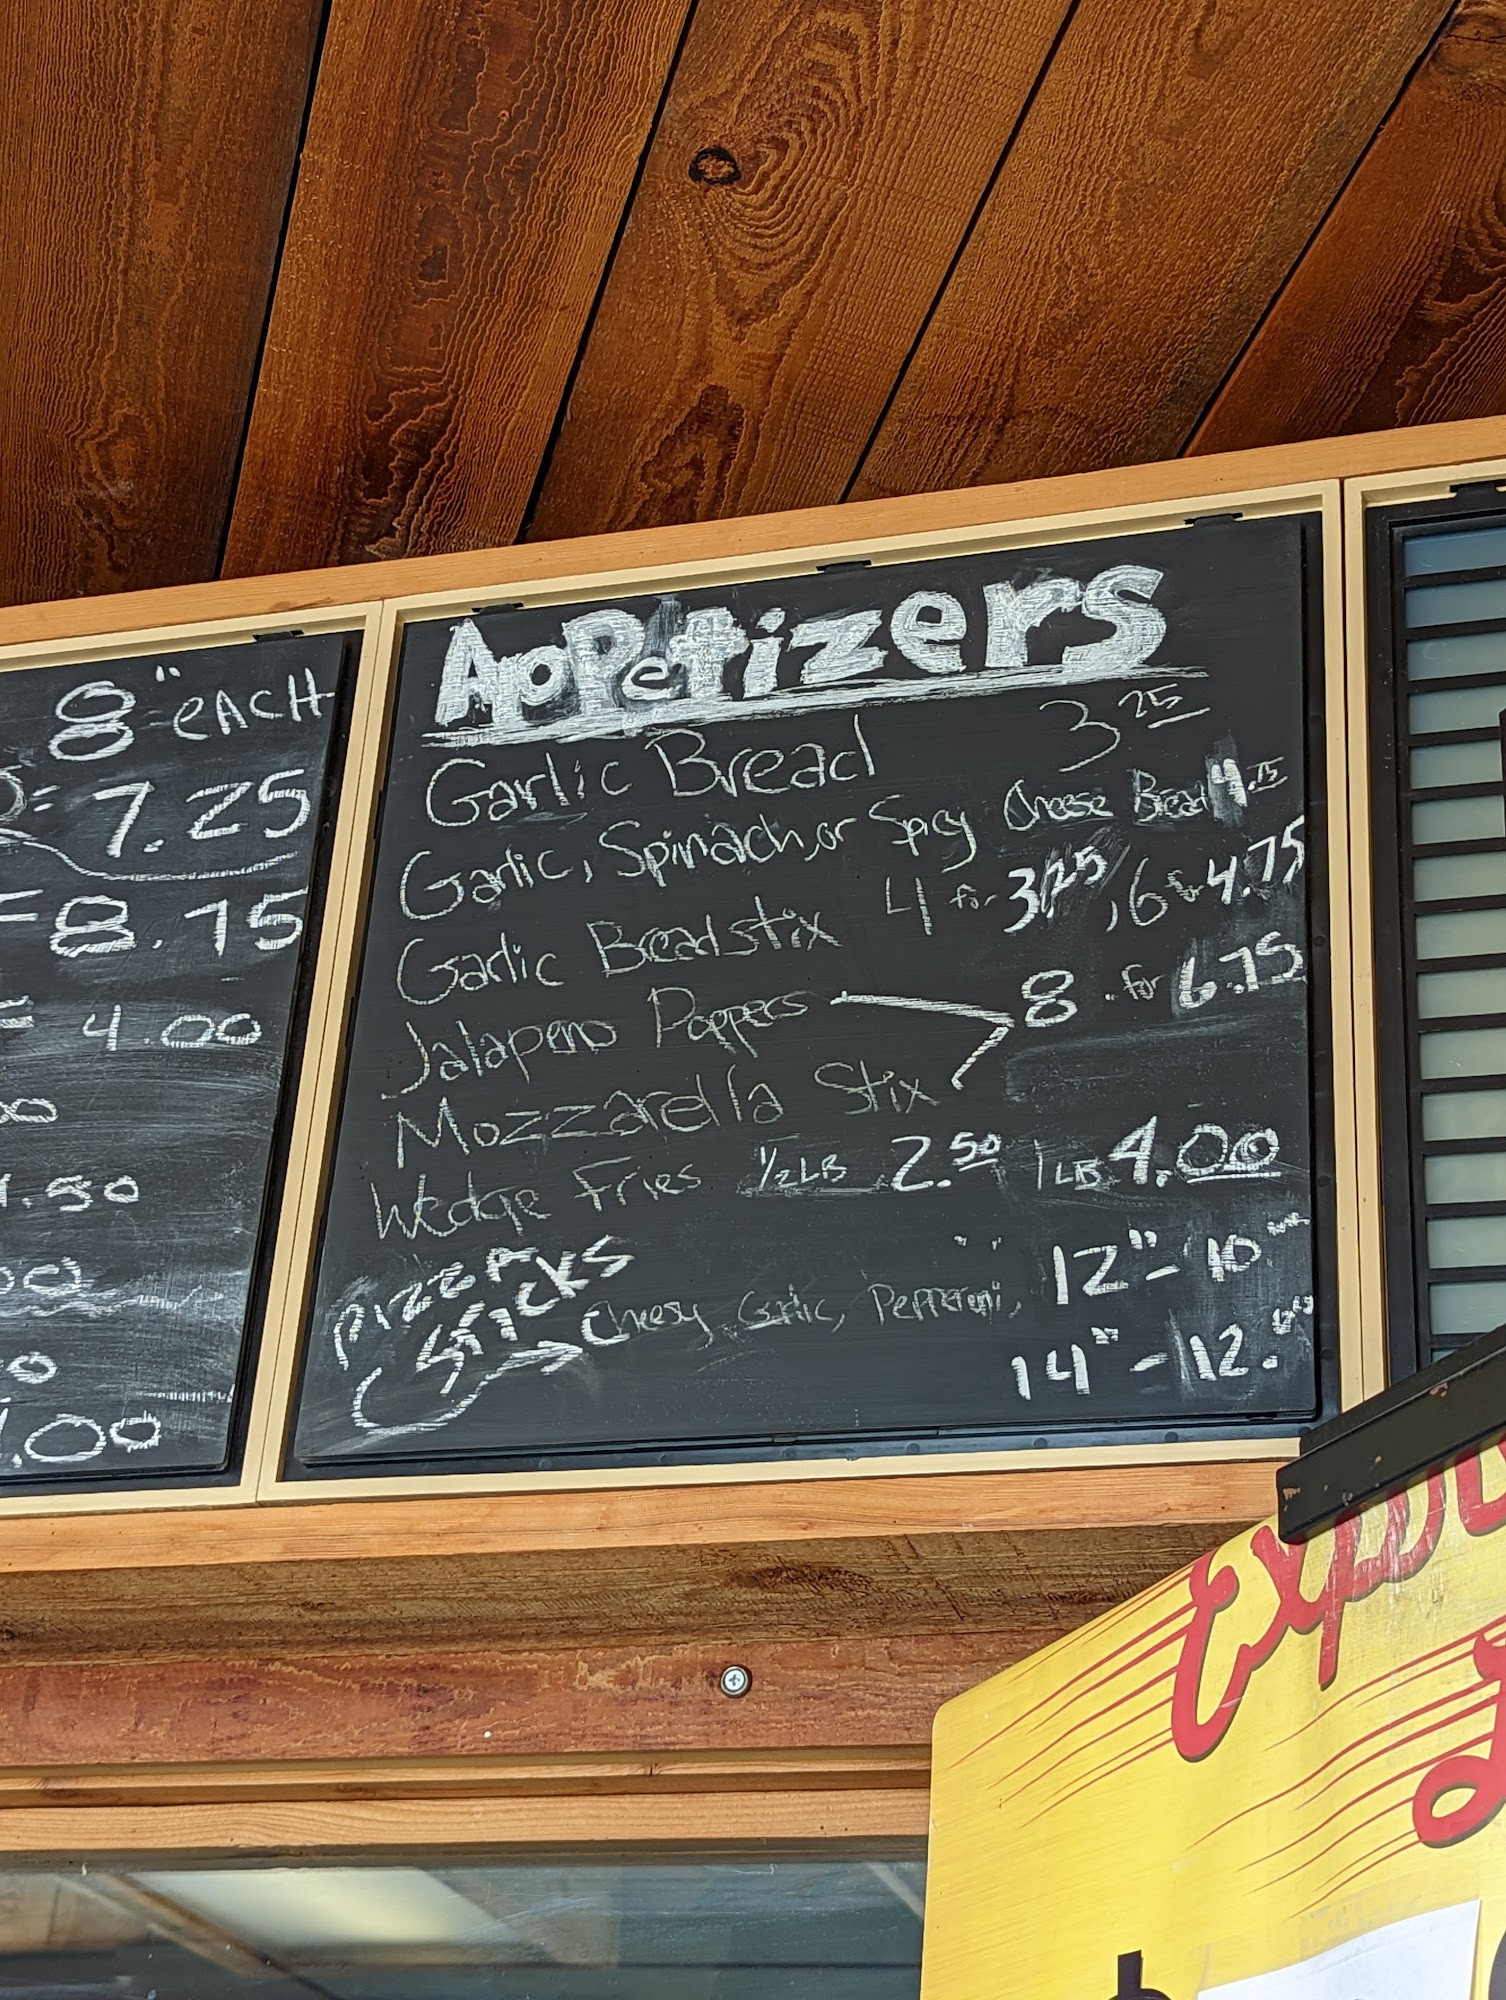 8" eACH
= 7.25
= 8.75
= 4.00
.50
.00
Appetizers
Garlic Bread 3 25
Garlic, Spinach, or Spicy Cheese Bread 4.75
Garlic Breadstix 4 for 3.25, 6 for 4.75
Jalapeno Poppers 8 for 6.75
Mozzarella Stix
Wedge Fries 1/2 LB 2.50 1 LB 4.00
PIZZA
STICKS
Cheesy Garlic, Pepperoni, 12" - 10
14" - 12.